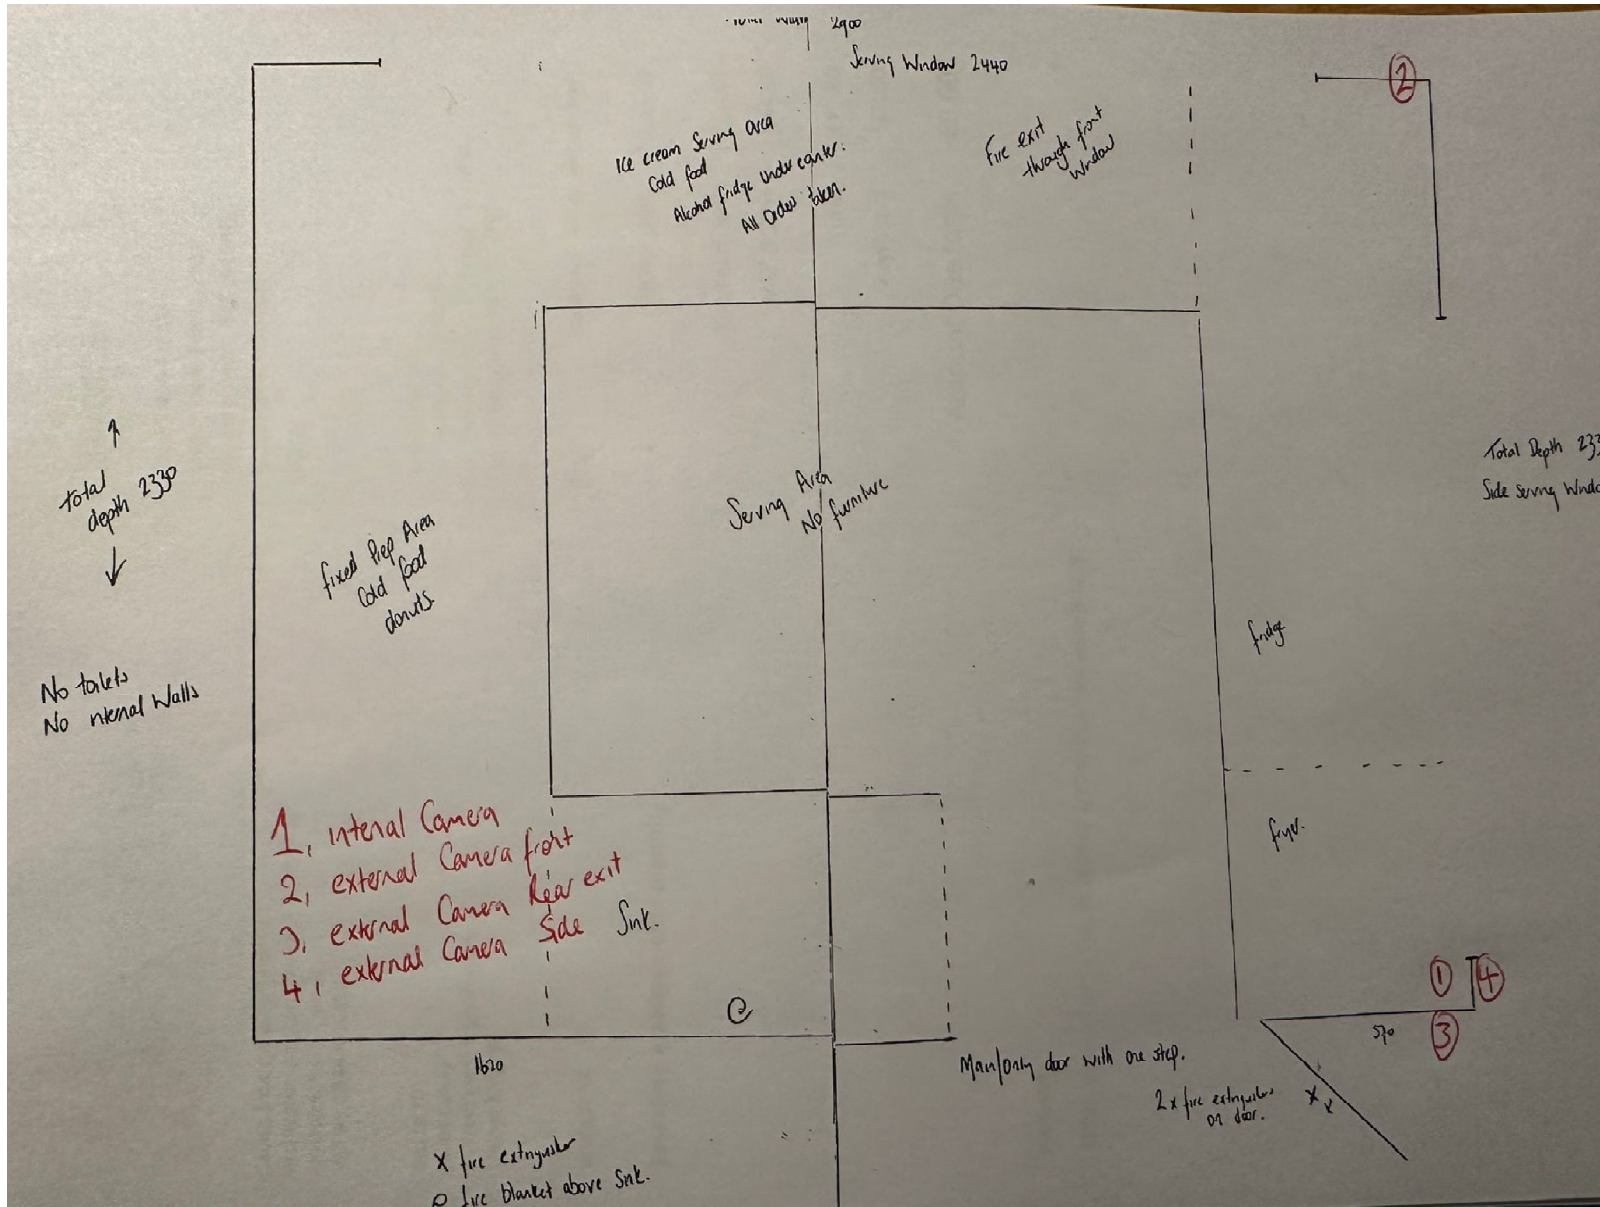 2900
Serving Window 2440
2
Ice cream Serving area
Cold food
Alcohol fridge under counter.
All Orders taken.
Fire exit
through front
Window
Total
depth 2330
Total Depth 233
Side serving Windo
Serving Area
No furniture
fixed Prep Area
Cold food
donuts.
fridge
No toilets
No nternal Walls
fryer.
1, internal Camera
2, external Camera front
3, external Camera Rear exit
4, external Camera Side
Sink.
1
4
3
570
1620
Main/only door with one step.
2x fire extinguishers
on door.
x x
x fire extinguisher
o fire blanket above Sink.